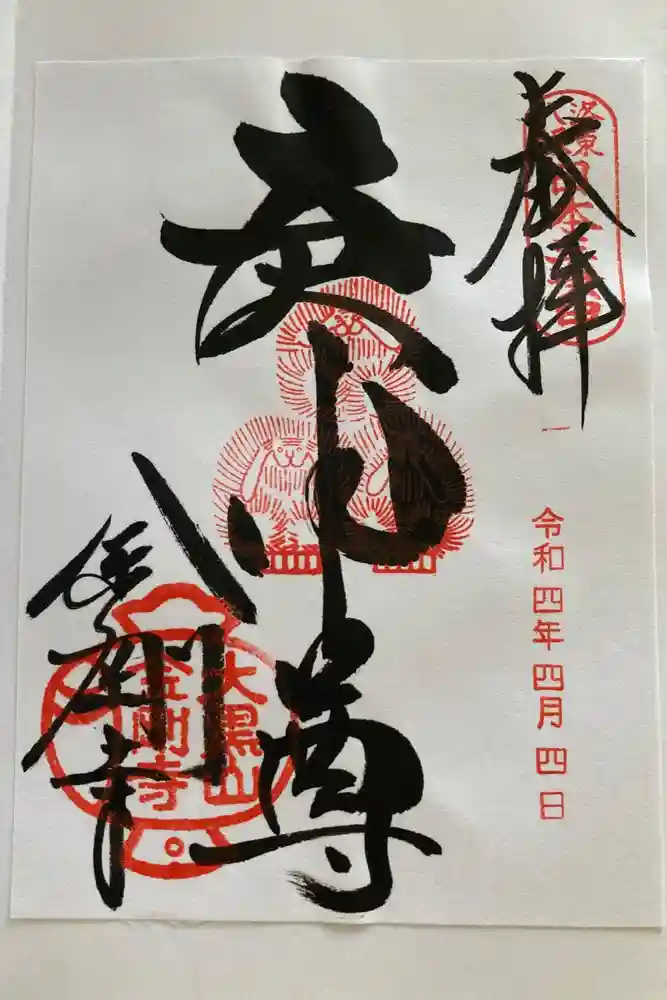 奉拝
令和四年四月四日
庚申尊
金剛寺
大黒山
金剛寺